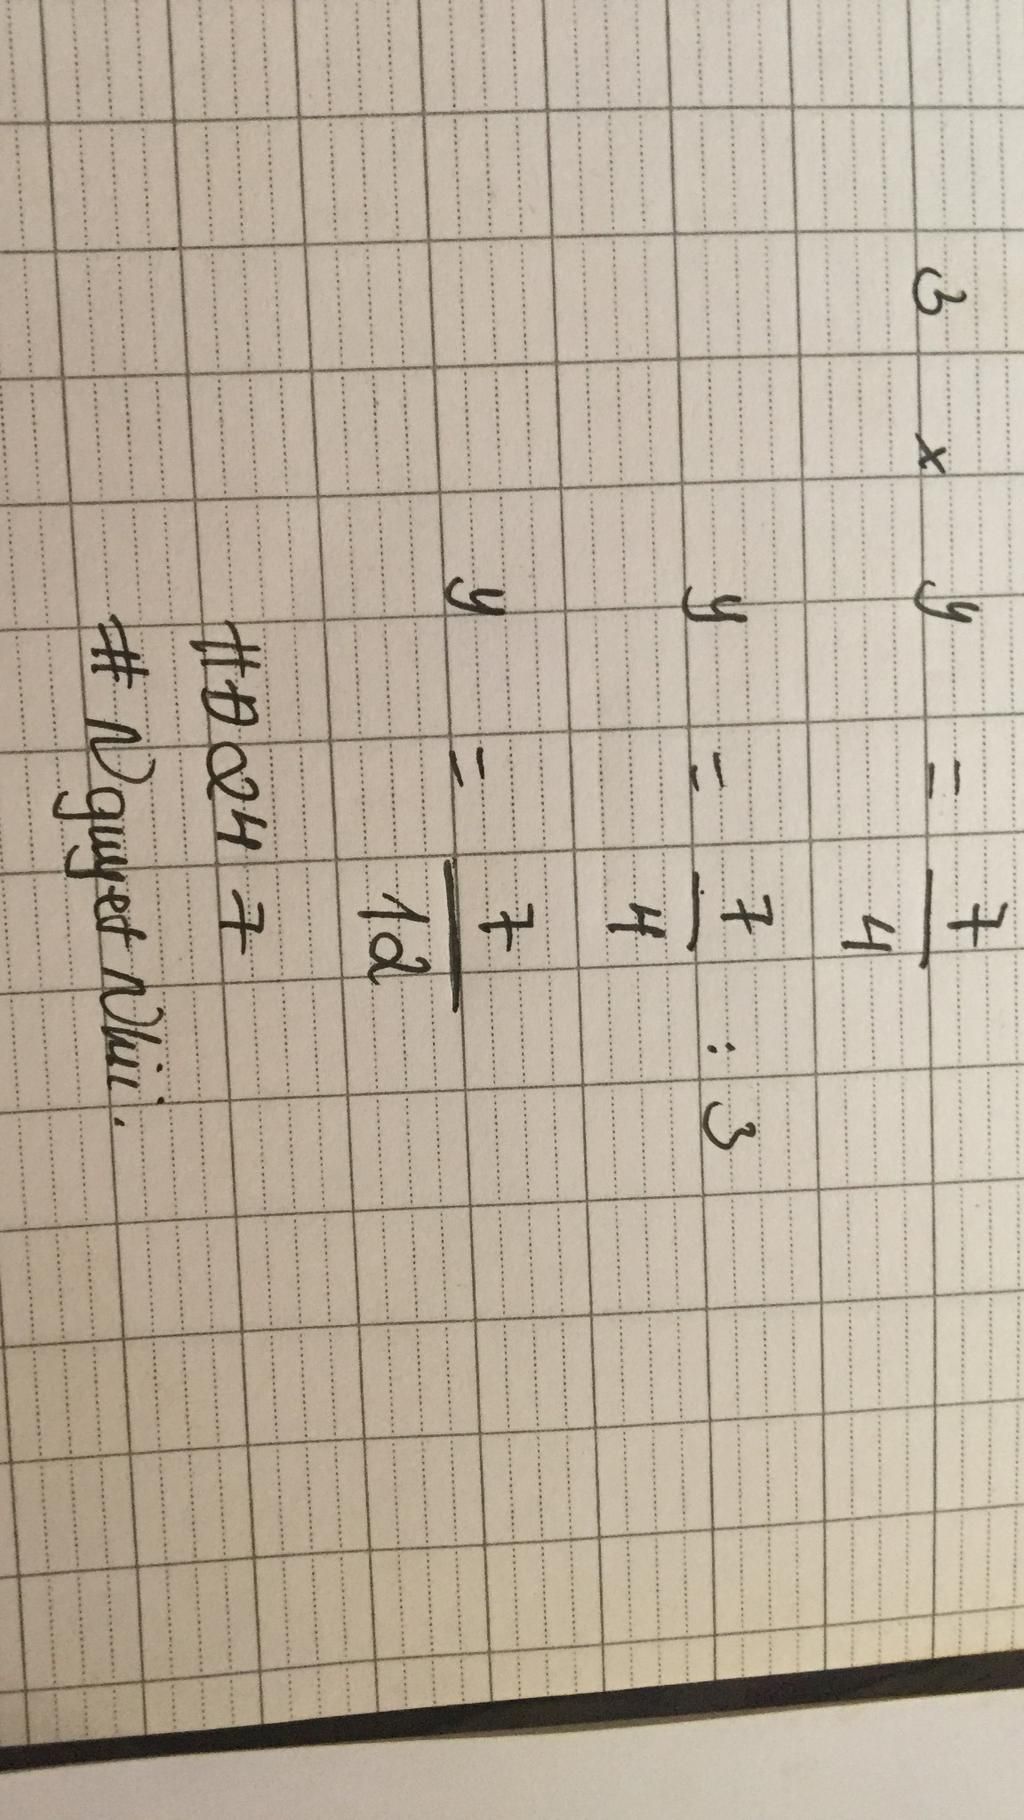 3 x y = 7/4
y = 7/4 : 3
y = 7/12
#D247
# Nguyet Nhii.